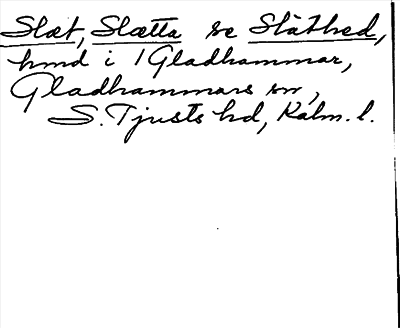 Slæt, Slætta se Slåthed,
hmd i 1 Gladhammar,
Gladhammars sn,
S. Tjusts hd, Kalm. l.